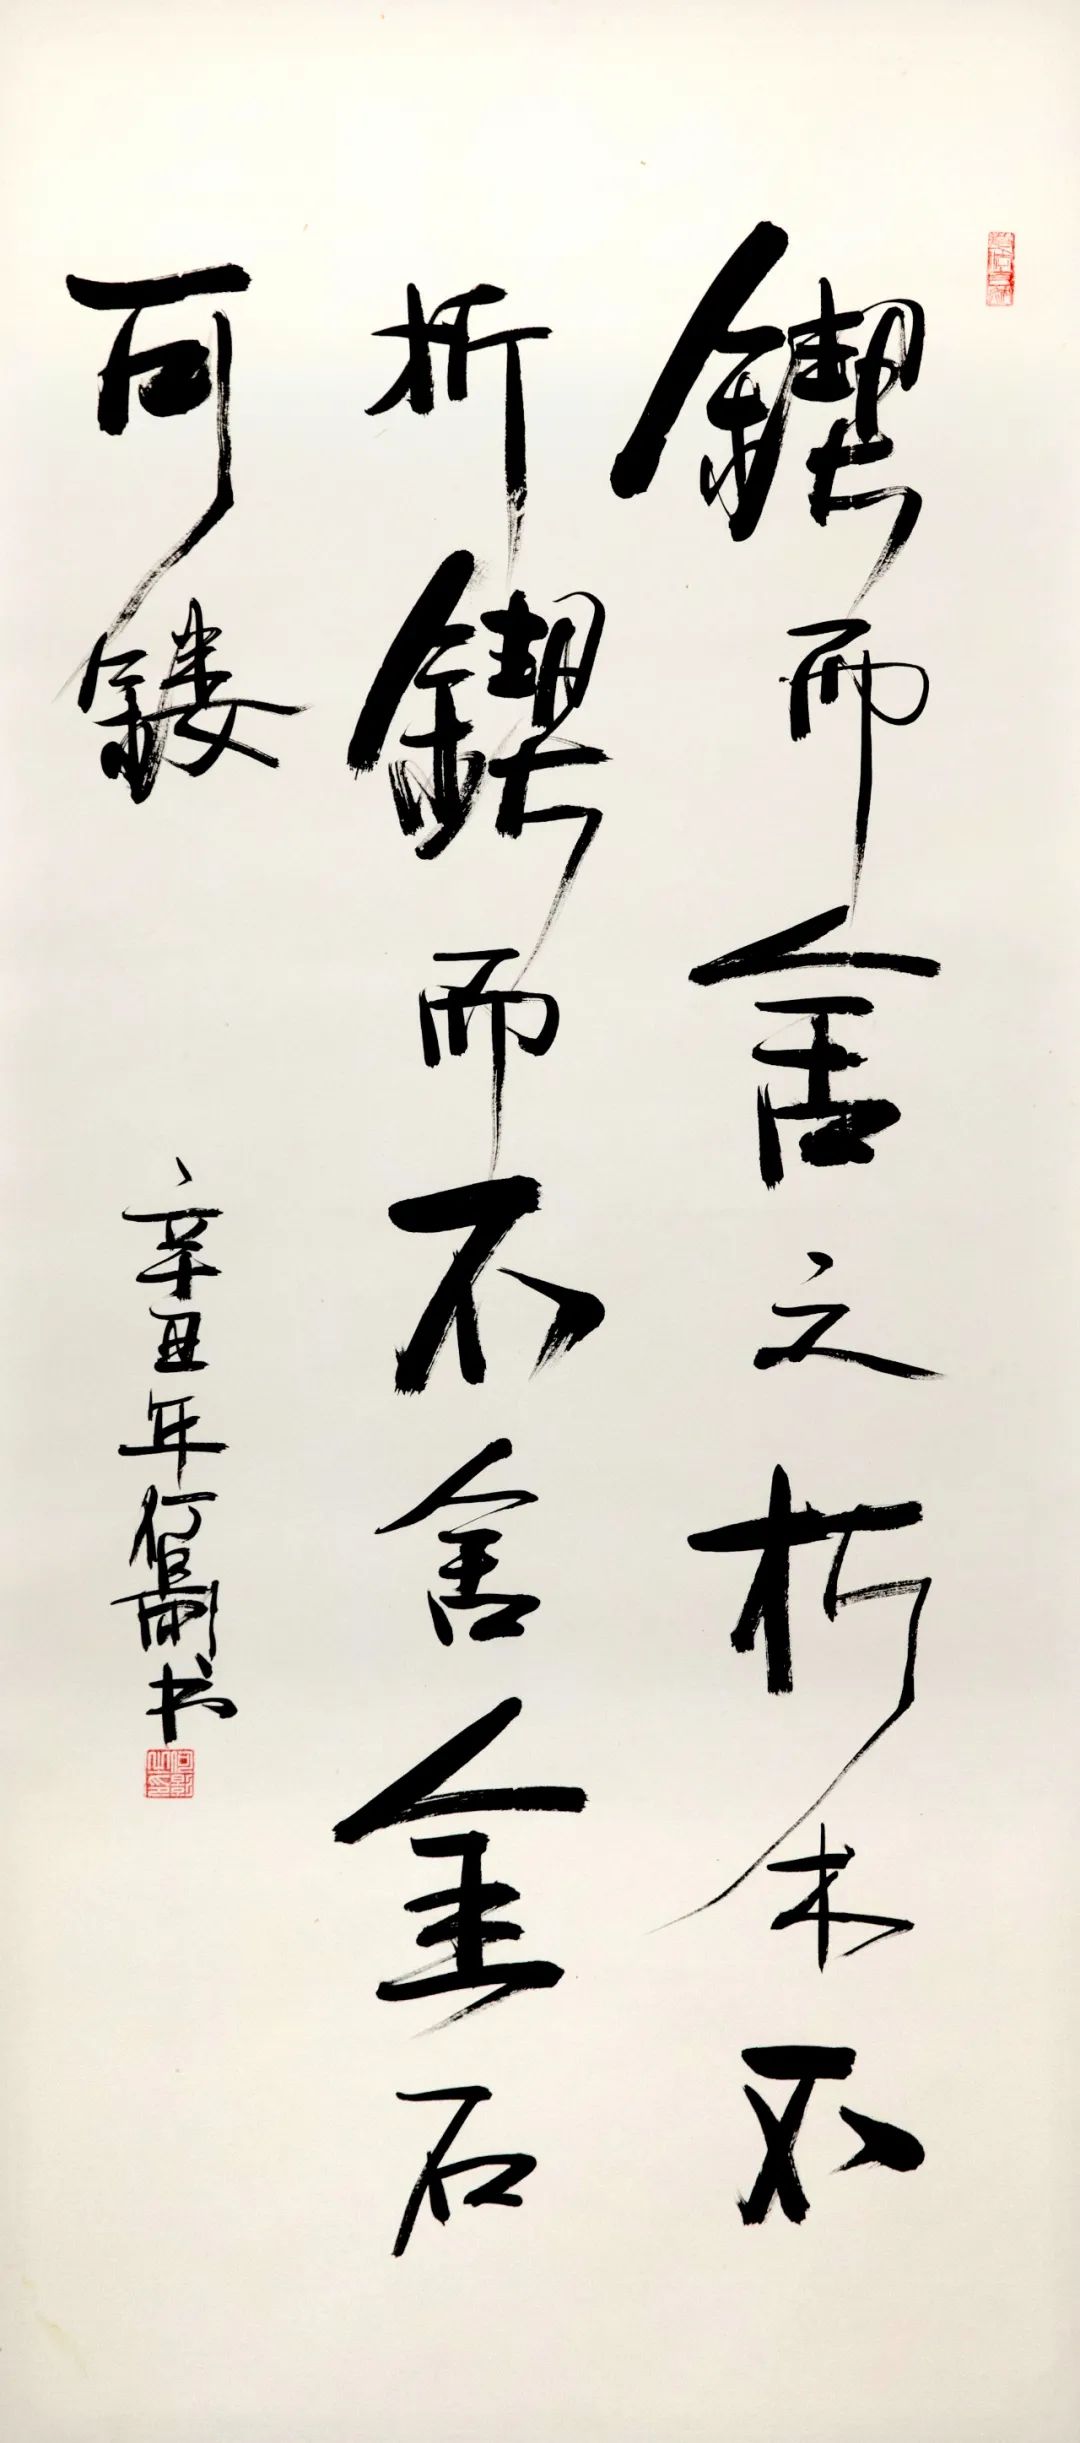 锲而舍之朽木不
折锲而不舍金石
可镂
辛丑年何书